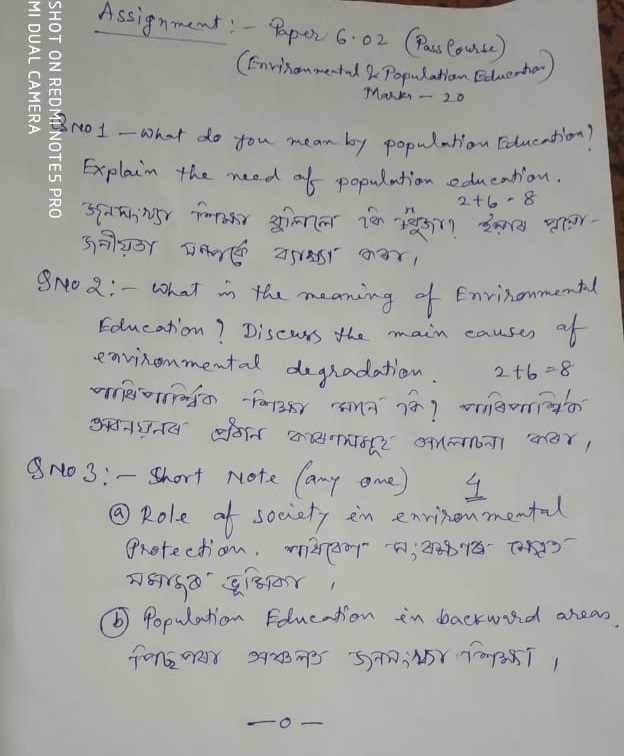 Assignment :- Paper 6.02 (Pass Course)
(Environmental & Population Education)
Marks - 20
QNO 1 - What do you mean by population Education?
Explain the need of population education.
2+6 = 8
জনসংখ্যা শিক্ষা বুলিলে কি বুজা? ইয়াৰ প্ৰয়ো-
জনীয়তা সম্পৰ্কে ব্যাখ্যা কৰা,
QNO 2:- What is the meaning of Environmental
Education? Discuss the main causes of
environmental degradation. 2+6=8
পাৰিপাৰ্শ্বিক শিক্ষা মানে কি? পাৰিপাৰ্শ্বিক
অৱনয়নৰ প্ৰধান কাৰণসমূহ আলোচনা কৰা,
QNO 3:- Short Note (any one) 4
(a) Role of society in environmental
Protection. পৰিৱেশ সংৰক্ষণৰ ক্ষেত্ৰত
সমাজৰ ভূমিকা ,
(b) Population Education in backward areas.
পিছপৰা অঞ্চলত জনসংখ্যা শিক্ষা ,
—0—
SHOT ON REDMI NOTE5 PRO
MI DUAL CAMERA